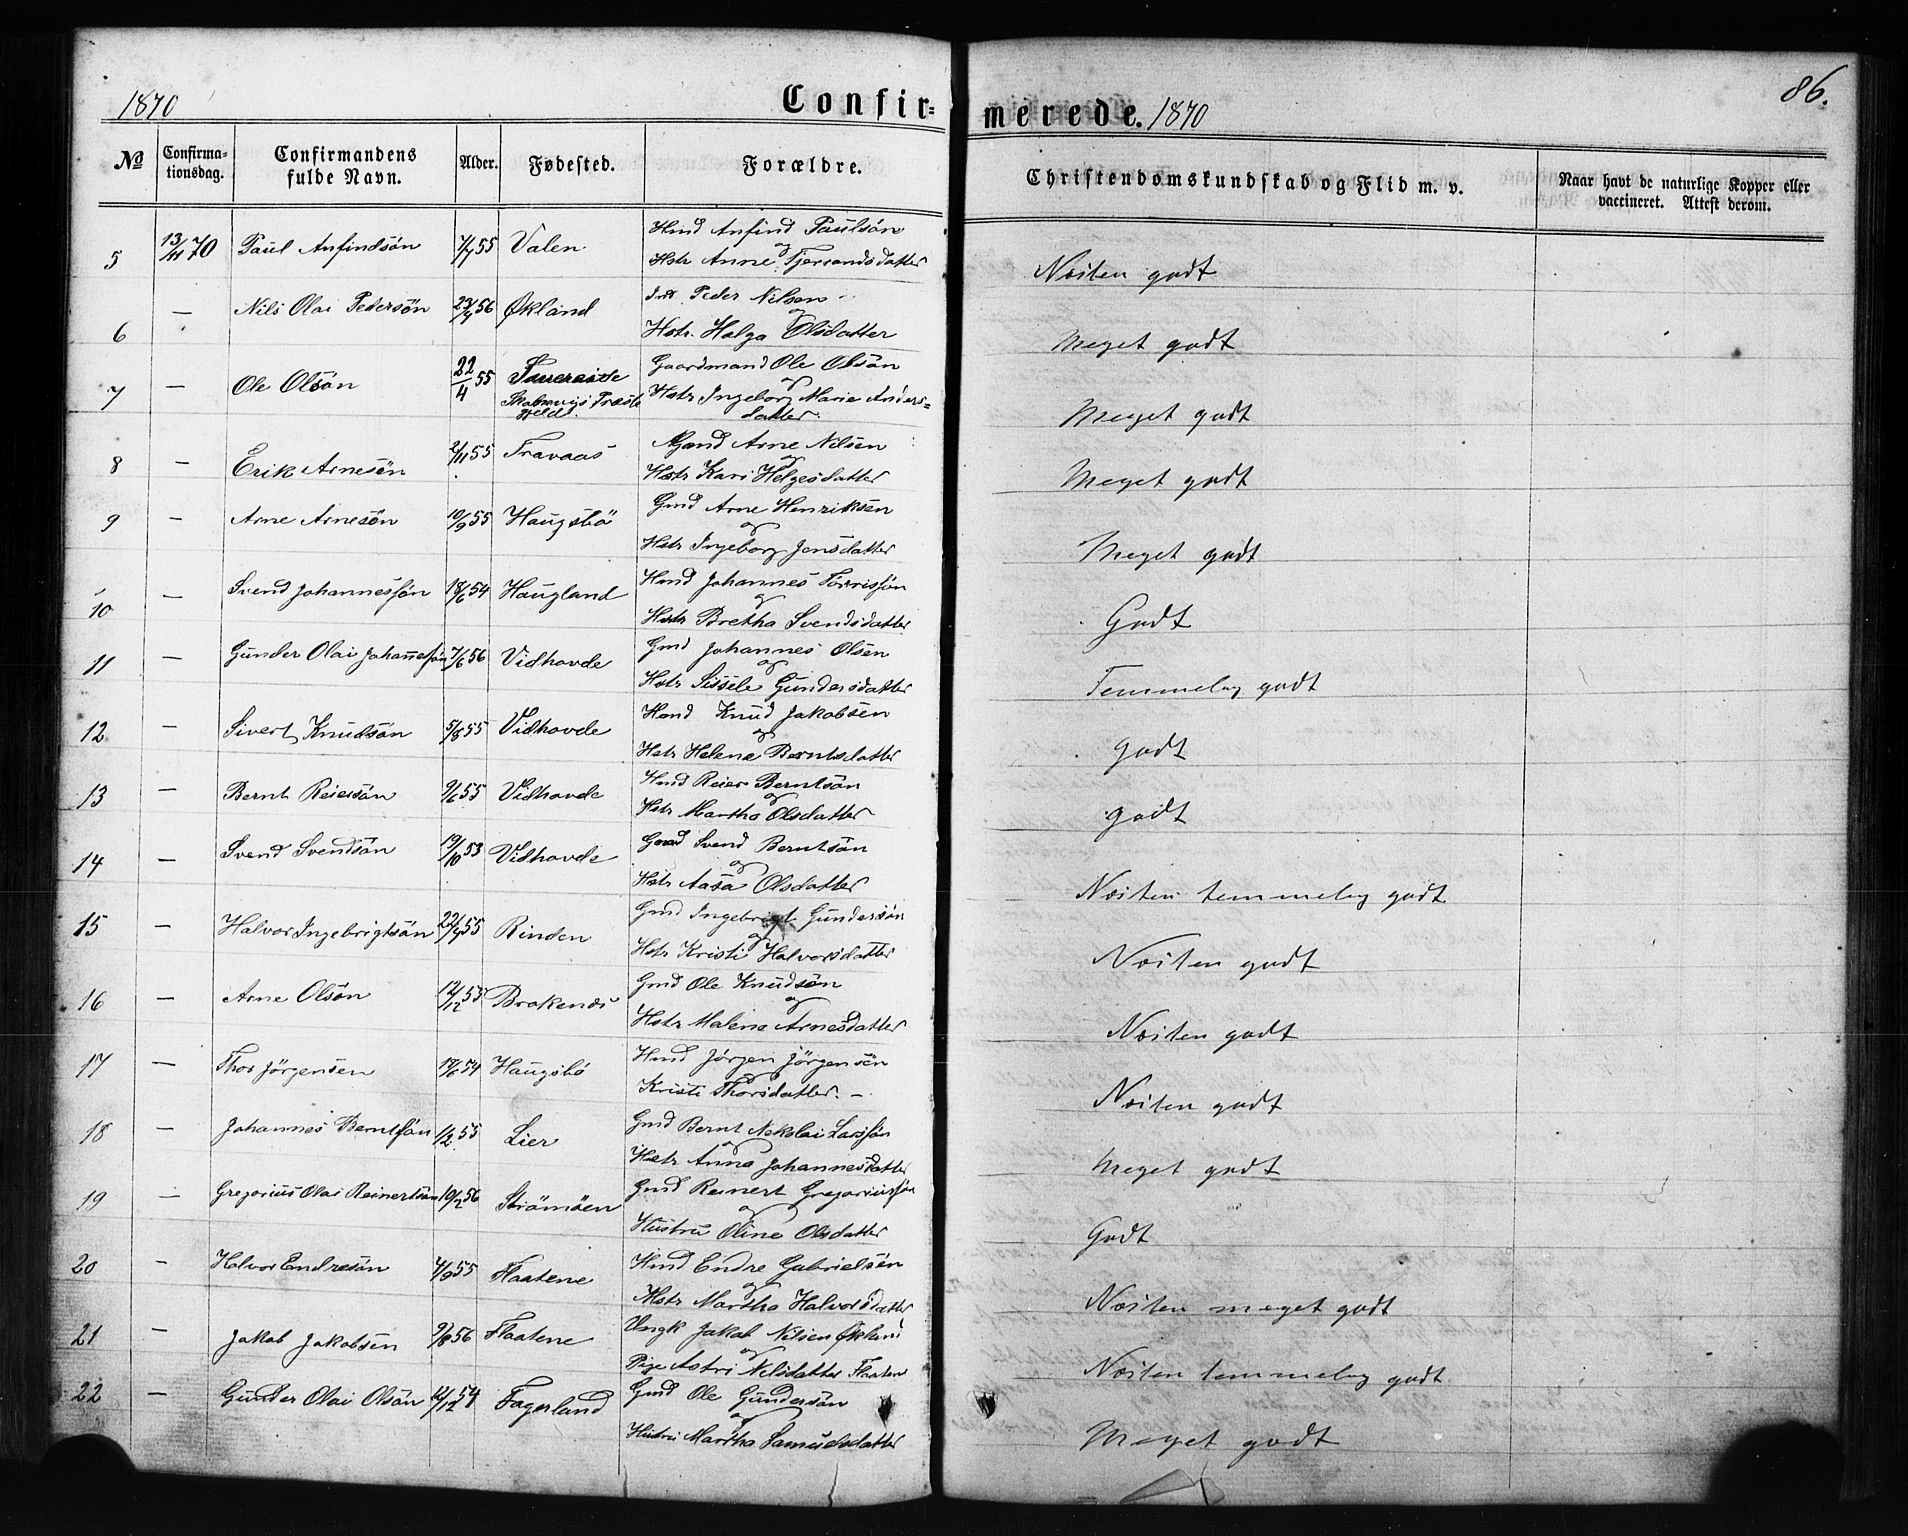 1870
Confir=
merede. 1870
86.
No
Confirma-
tionsdag.
Confirmandens
fulde Navn.
Alder.
Fødested.
Forældre.
Christendomskundskab og Flid m. v.
Naar havt de naturlige Kopper eller
vaccineret. Attest derom.
5 Paul Anfindsön 55 Valen Hmd Anfind Paulsön
og
Hstr Anne Tjerandsdatter
Næsten godt
6 — Nils Olai Pedersön 56 Økland Peder Nilsen
og
Hstr. Helga Olsdatter
Meget godt
7 — Ole Olsön 22/4 55 Gaardmand Ole Olsön
og
Hstr Ingeborg Marie Anders=
datter.
Meget godt
8 — Erik Arnesön 2/11 55 Travaas Arne Nilsen
og
Hstr Kari Helgesdatter
Meget godt
9 — Arne Arnesön 10/9 55 Haugsbö Gmd Arne Henriksen
og
Hstr Ingeborg Jonsdatter
Meget godt
10 — Svend Johannessön 18/6 54 Haugland Hmd Johannes Torrissön
og
Hstr Bretha Svendsdatter
Godt
11 — Gunder Olai Johannesön 7/6 56 Vidhovde Gmd Johannes Olsen
og
Hstr Sissele Gundersdatter
Temmelig godt
12 — Sivert Knudsön 5/8 55 Vidhovde Hmd Knud Jakobsen
og
Hstr Helene Berntsdatter
godt
13 — Bernt Reiersön 9/6 55 Vidhovde Hmd Reier Berntsön
og
Hstr Martha Olsdatter
godt
14 — Svend Svendsön 19/10 53 Vidhovde Gmd Svend Berntsön
og
Hstr Aasa Olsdatter
Næsten temmelig godt
15 — Halvor Ingebrigtsön 55 Rinden Gmd Ingebrigt Gundersön
og
Hstr Kristi Halvorsdatter
Næsten godt
16 — Arne Olsön 12/12 53 Brakenæs Gmd Ole Knudsön
og
Hstr Malena Arnesdatter
Næsten godt
17 — Thor Jörgensen 54 Haugsbö Hmd Jörgen Jörgensön
Kristi Thorsdatter. —
Næsten godt
18 — Johannes Berntsön 1/2 55 Lier Gmd Bernt Nekolai Larssön
og
Hstr Anna Johannesdatter
Meget godt
19 — Gregorius Olai Reinertsön 10/2 56 Strömöen Gmd Reinert Gregoriussön
og
Hustru Oline Olsdatter
Godt
20 — Halvor Endresön 4/9 55 Flaatene Hmd Endre Gabrielsön
og
Hstr Martha Halvorsdatter
Næsten meget godt
21 — Jakob Jakobsen 9/8 56 Flaatene Ungk Jakob Nilsen Økland
og
Pige Astri Nilsdatter Flaaten
Næsten temmelig godt
22 — Gunder Olai Olsön 54 Fagerland Gmd Ole Gundersön
og
Hustru Martha Samuelsdatter
Meget godt